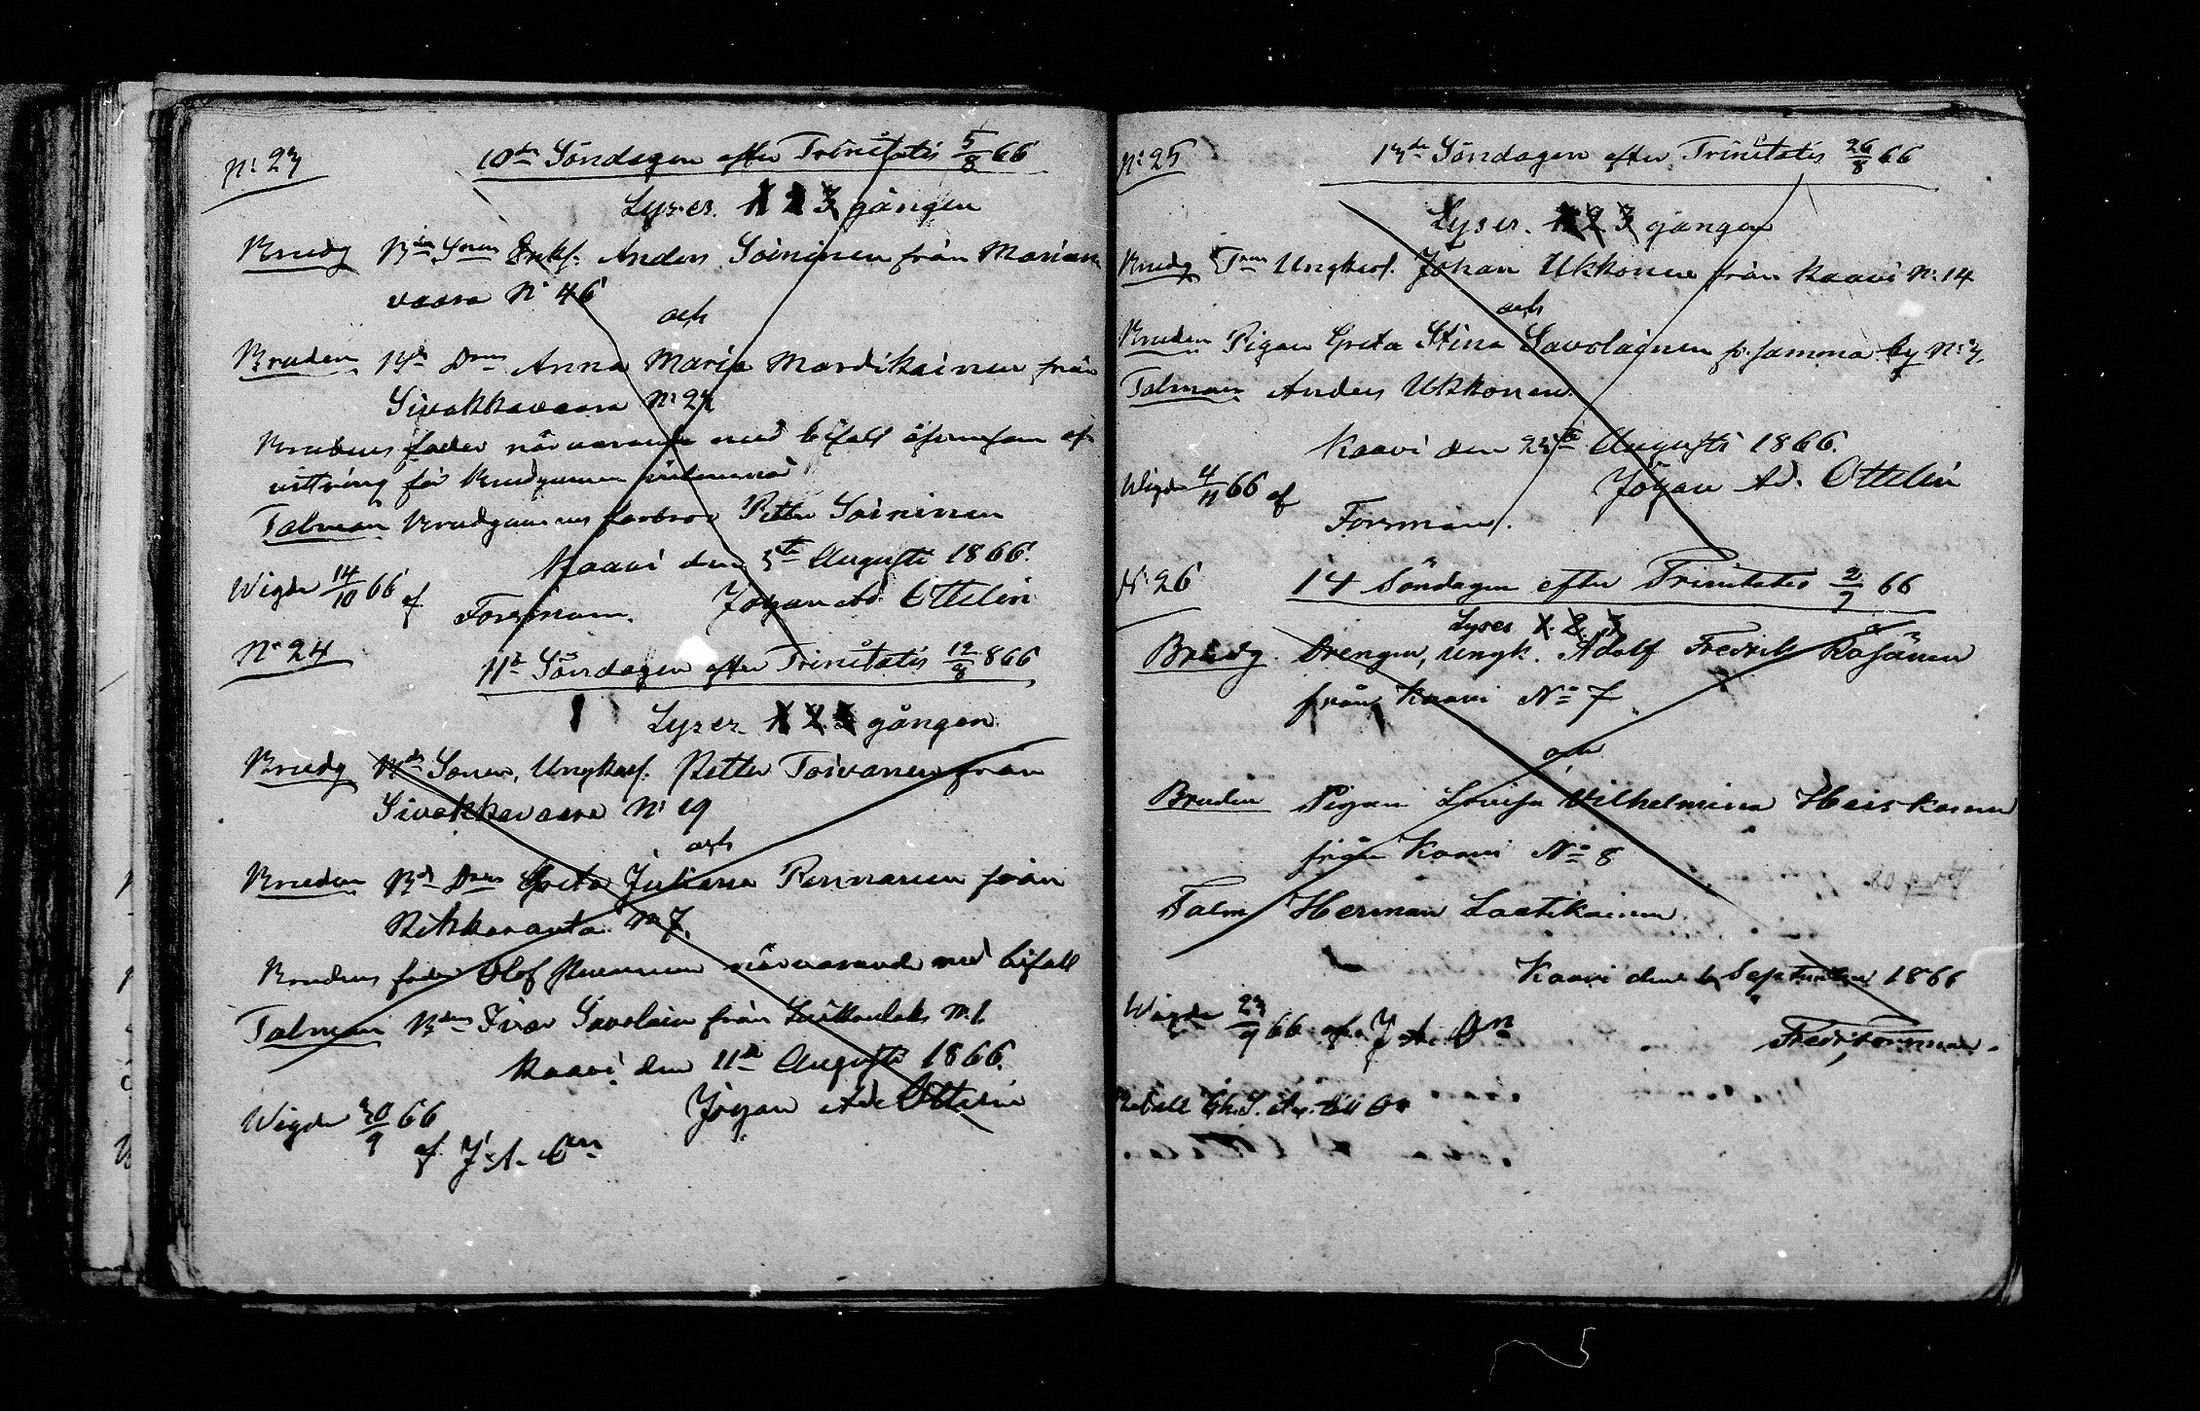 N: 23
10de Söndagen efter Trinitatis 5/8 66
Lyses. 1 2 3 gången
Brudg Bde Sonen Enkl. Anders Soininen från Marian
vaara N: 46
och
Bruden Bde Drn Anna Maria Mardikainen från
Sivakkavaara N: 27
Brudens fader närvarande med bifall äfvensom af
vittring för Brudgummen
Talman Brudgummens farbror Petter Soininen
Kaavi den 5te Augusti 1866.
Wigde 14/10 66 af Forsman. Johan Ad. Ottelin
N: 24
11te Söndagen efter Trinitatis 12/8 866
Lyses 1 2 3 gången.
Brudg Bde Sonen, Ungkarl. Petter Toivanen från
Sivakkavaara N: 19
och
Bruden Bde Dren Greta Juliana Pennanen från
Rikkaranta N: 7.
Brudens fader Olof Pennanen närvarande med bifall
Talman Bden Ivar Savolain från N: 1.
Kaavi den 11te Augusti 1866.
Johan Ad. Ottelin
Wigde 30/9 66
af J. A. On
N: 25
13de Söndagen efter Trinitatis 26/8 66
Lyses. 1 2 3 gången
Brudg Tnen Ungkarl. Johan Ukkonen från Kaavi N: 14
och
Bruden Pigan Greta Stina Savolainen fr. samma by N: 3.
Talman Anders Ukkonen.
Kaavi den 25te Augusti 1866.
Johan Ad. Ottelin
Wigde 4/11 66 af
Forsman.
N: 26
14 Söndagen efter Trinitatis 2/9 66
Lyses 1. 2. 3
Brudg. Drengen, Ungk. Adolf Fredrik Räsänen
från Kaavi No 7
och
Bruden Pigan Lovisa Vilhelmina Heiskanen
från Kaavi No 8
Talm Herman Laatikainen.
Kaavi den 1 September 1866
Wigde 23/9 66 af J. A. On
Fredr. Forsman.